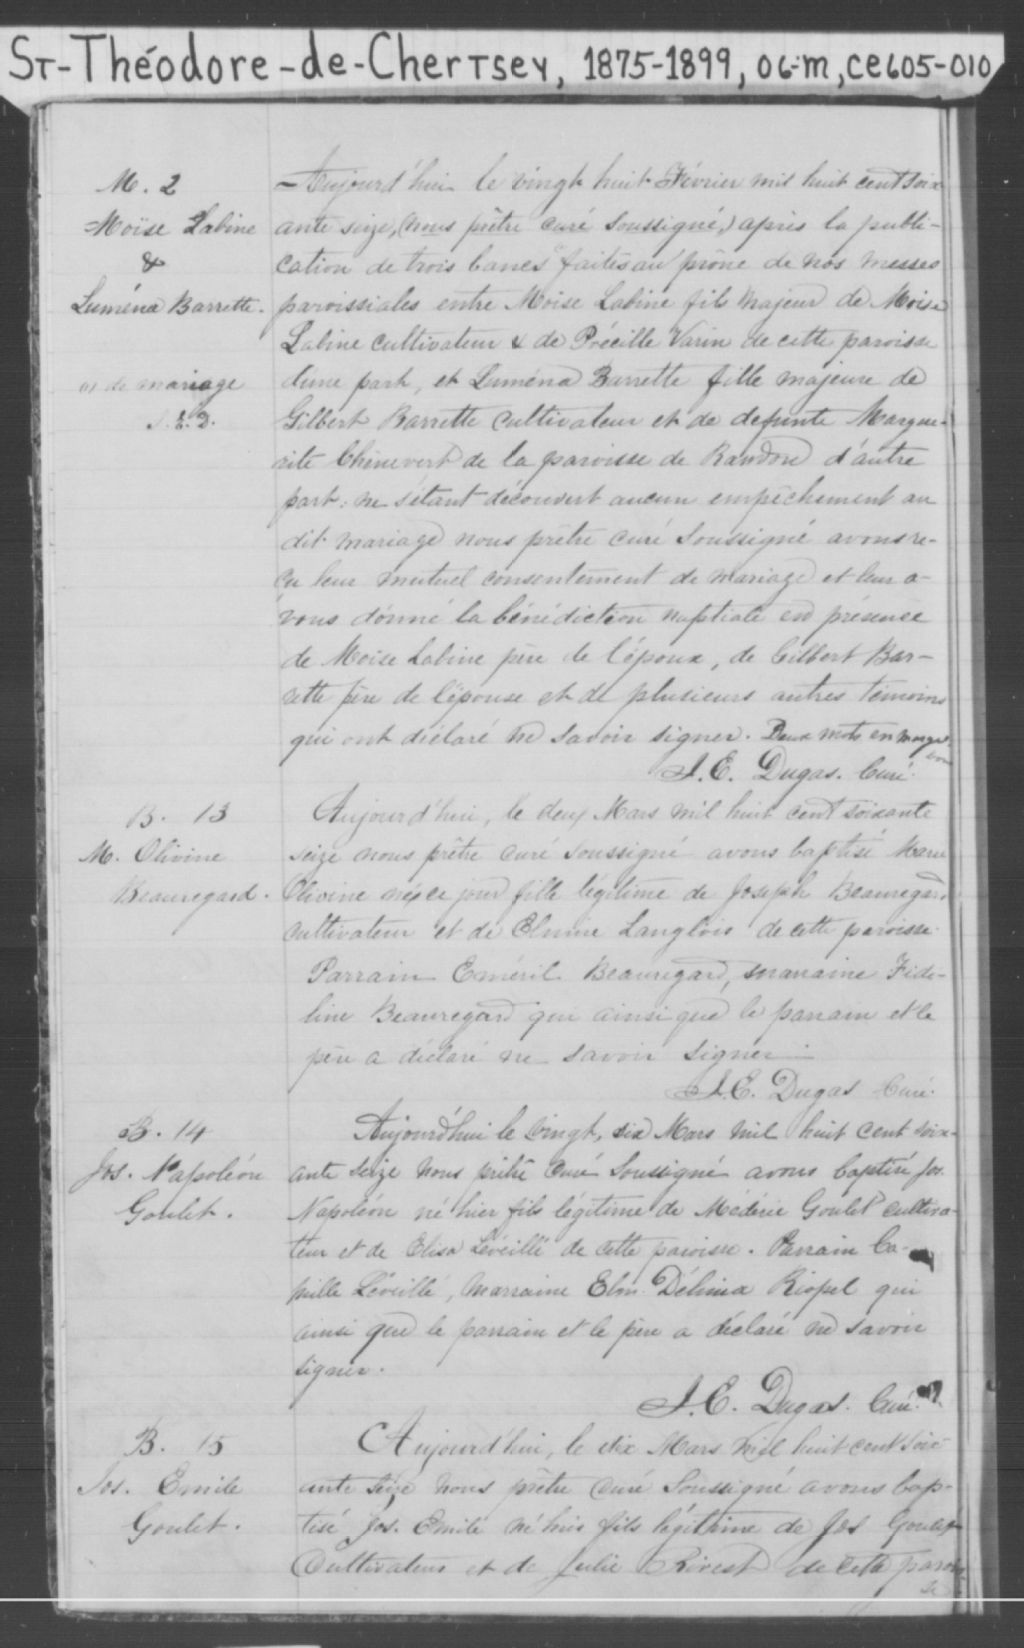 St-Théodore-de-Chertsey, 1875-1899, 06-m, CE605-010
M. 2
Moïse Labine
&
Luména Barrette.
de mariage
Aujourd'hui le vingt huit Février mil huit cent soix-
ante seize, (nous prêtre curé soussigné,) après la publi-
cation de trois bancs faites au prône de nos messes
paroissiales entre Moise Labine fils majeur de Moise
Labine cultivateur & de Précille Varin de cette paroisse
d'une part, et Luména Barrette fille majeure de
Gilbert Barrette cultivateur et de defunte Margue-
rite Chenevert de la paroisse de Rawdon d'autre
part: ne s'étant découvert aucun empêchement au
dit mariage nous prêtre curé soussigné avons re-
çu leur mutuel consentement de mariage et leur a-
vons donné la bénédiction nuptiale en présence
de Moise Labine père de l'époux, de Gilbert Bar-
rette père de l'épouse et de plusieurs autres témoins
qui ont déclaré ne savoir signer. Deux mots en marge
bons
J. E. Dugas. Curé.
B. 13
M. Olivine
Beauregard.
Aujourd'hui, le deux Mars mil huit cent soixante
seize nous prêtre curé soussigné avons baptisé Marie
Olivine née ce jour fille légitime de Joseph Beauregard
cultivateur et de Elmire Langlois de cette paroisse.
Parrain Eméril Beauregard, marraine Fidé-
line Beauregard qui ainsi que le parrain et le
père a déclaré ne savoir signer.
J. E. Dugas Curé.
B. 14
Jos. Napoléon
Goulet.
Aujourd'hui le vingt, six Mars mil huit cent soix-
ante seize nous prêtre curé soussigné avons baptisé Jos.
Napoléon né hier fils légitime de Médéric Goulet cultiva-
teur et de Elisa Léveillé de cette paroisse. Parrain Ca-
mille Léveillé, marraine Elm. Délima Riopel qui
ainsi que le parrain et le père a déclaré ne savoir
signer.
J. E. Dugas. Curé.
B. 15
Jos. Emile
Goulet.
Aujourd'hui, le dix Mars mil huit cent soix-
ante seize nous prêtre curé soussigné avons bap-
tisé Jos. Emile né hier fils légitime de Jos Goulet
Cultivateur et de Julie Rivest de cette parois-
se